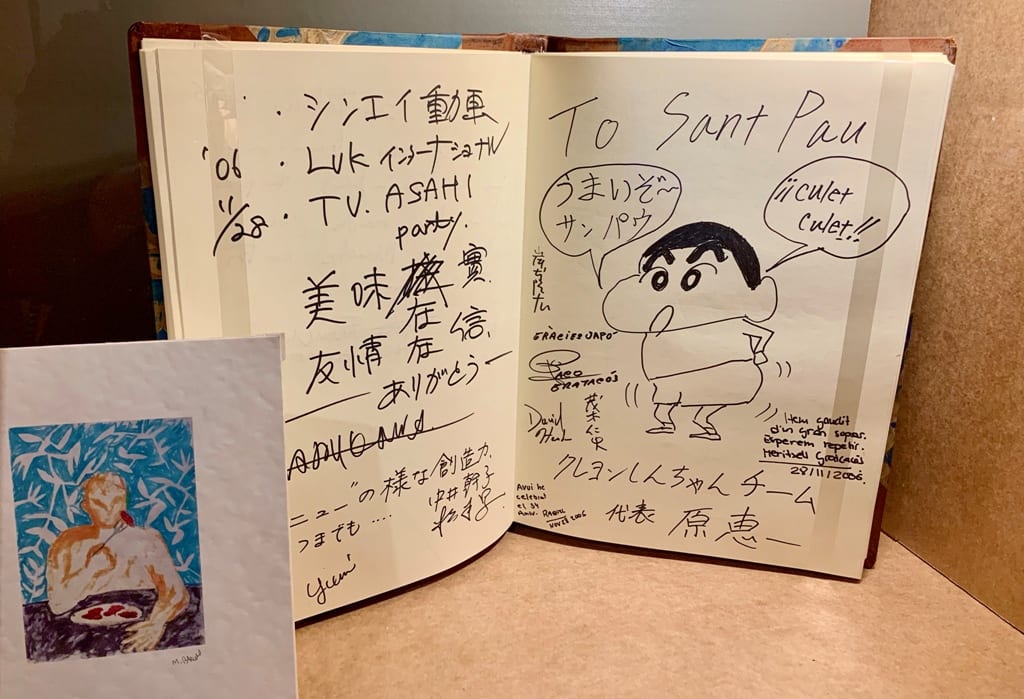 ・シンエイ動画
'06 ・LUK インターナショナル
11/28 ・TV. ASAHI
party.
美味 在 實
友情 在 信
ありがとう
ニュー"の様な創造力、
つまでも....
中井幹子
Yumi
To Sant Pau
うまいぞ〜
サンパウ
¡¡Culet
Culet!!
GRÀCIES JAPÓ
茂木仁史
David
クレヨンしんちゃん チーム
代表 原恵一
Hem gaudit
d'un gran sopar.
Esperem repetir.
Meritxell
28/11/2006.
Avui he
celebrat
el 34
Aniv.
Nov 28 2006